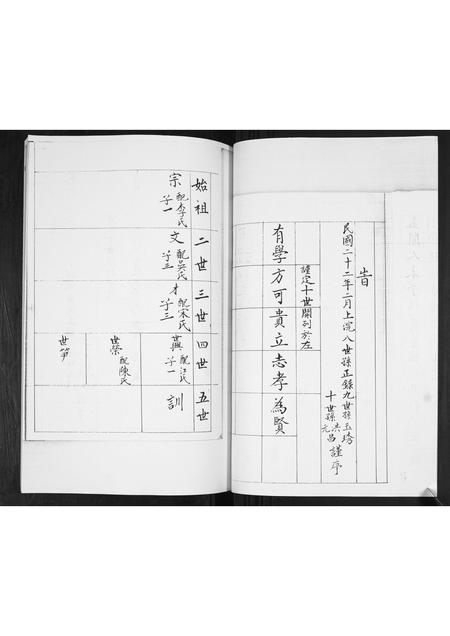 告
民國二十二年二月上浣八世孫正錄九世孫玉琦
十世孫洪昌元謹序
謹定十世開列於左
有學方可貴立志孝為賢
始祖 二世 三世 四世 五世
宗 配李氏 子一
文 配吳氏 子三
才 配宋氏 子三
世興 配江氏 子一
訓
世榮 配陳氏
世笋